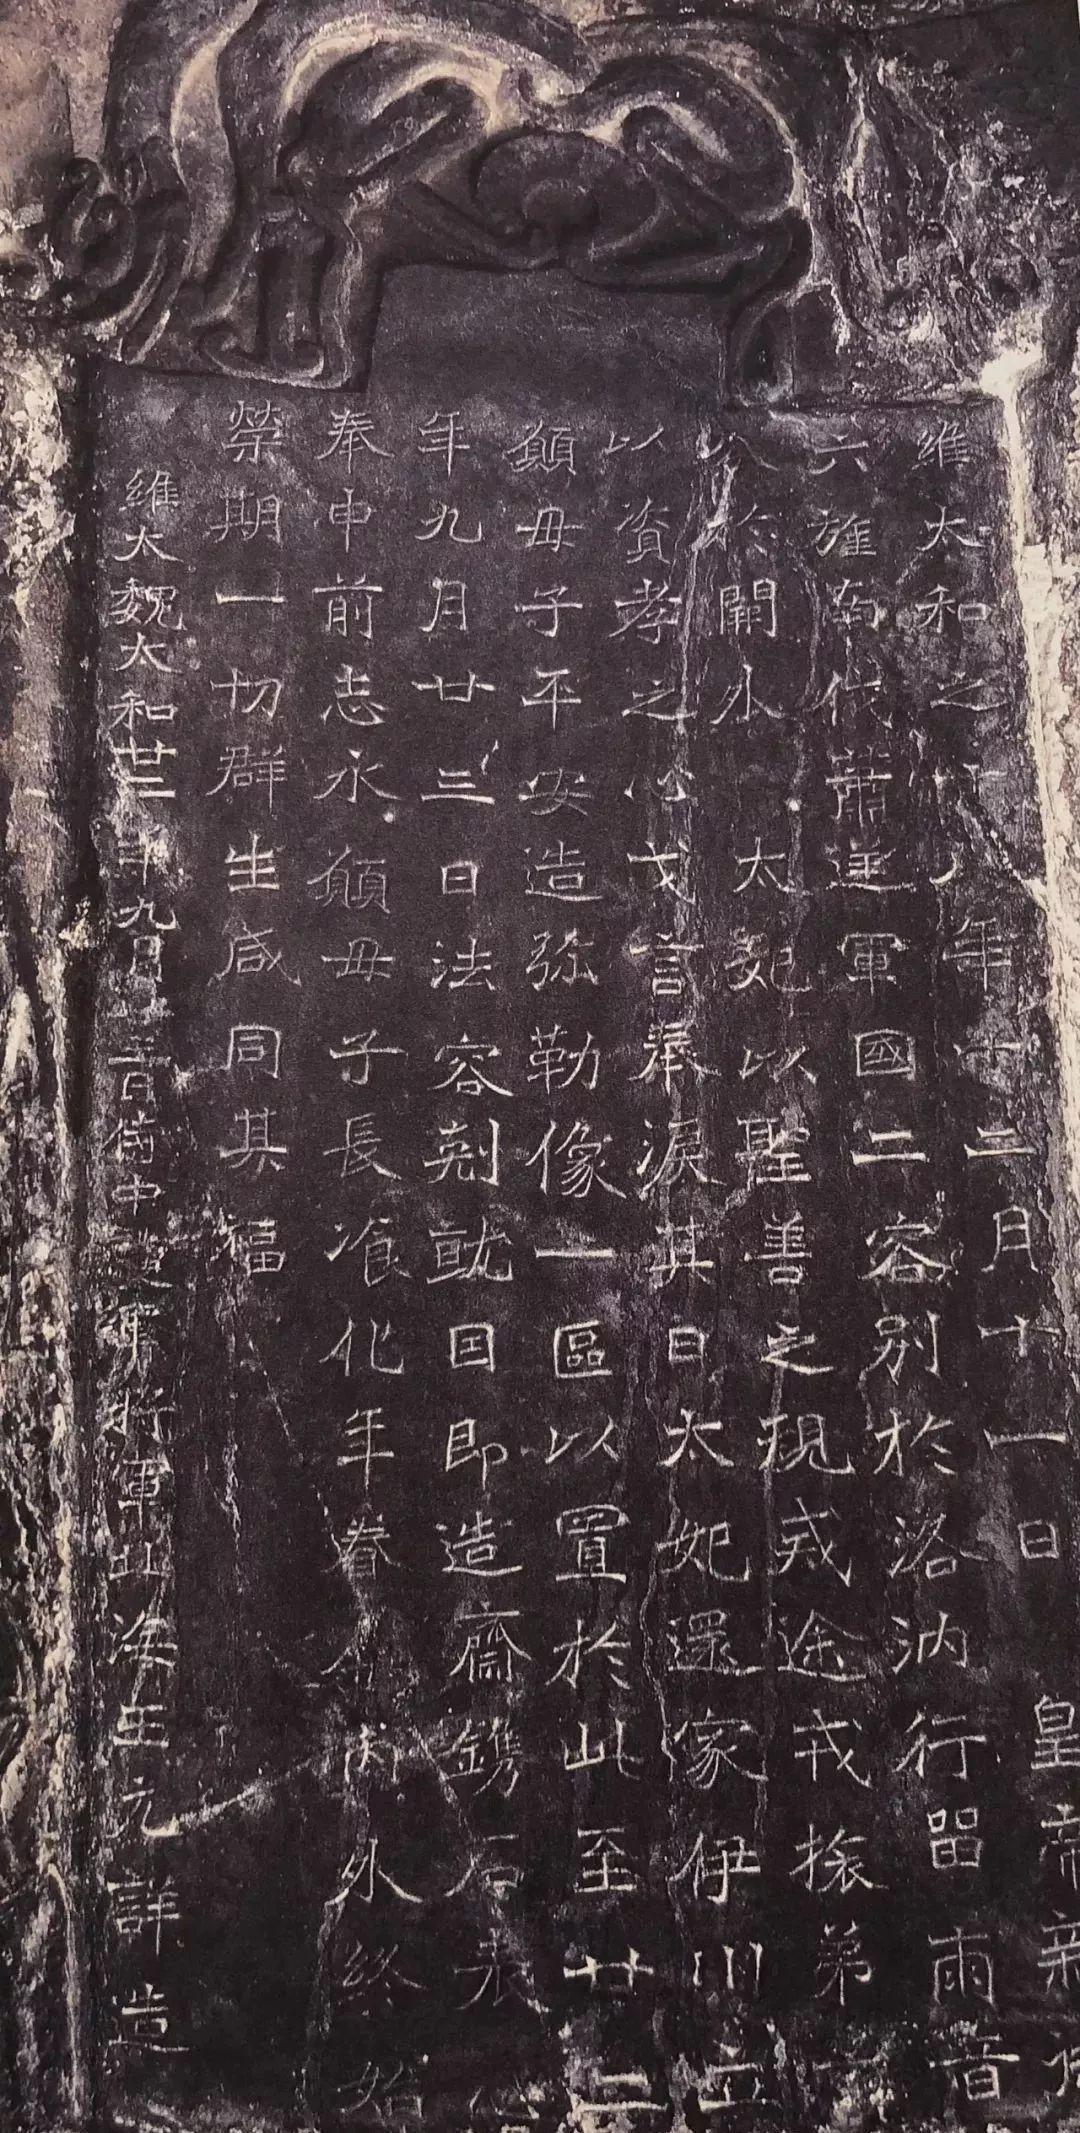 維太和之十八年十二月十一日皇帝親御
六旌南伐蕭逆軍國二容別於洛汭行留兩音
分於闕外太妃以聖善之規戒途戎旅弟子
以資孝之心戈言奉淚其日太妃還家伊川立
願母子平安造弥勒像一區以置於此至廿二
年九月廿三日法容剋就因即造齋鐫石表心
奉申前志永願母子長飡化年眷屬內外終始
榮期一切群生咸同其福
維太魏太和廿二年九月廿三日侍中護軍將軍北海王元詳造